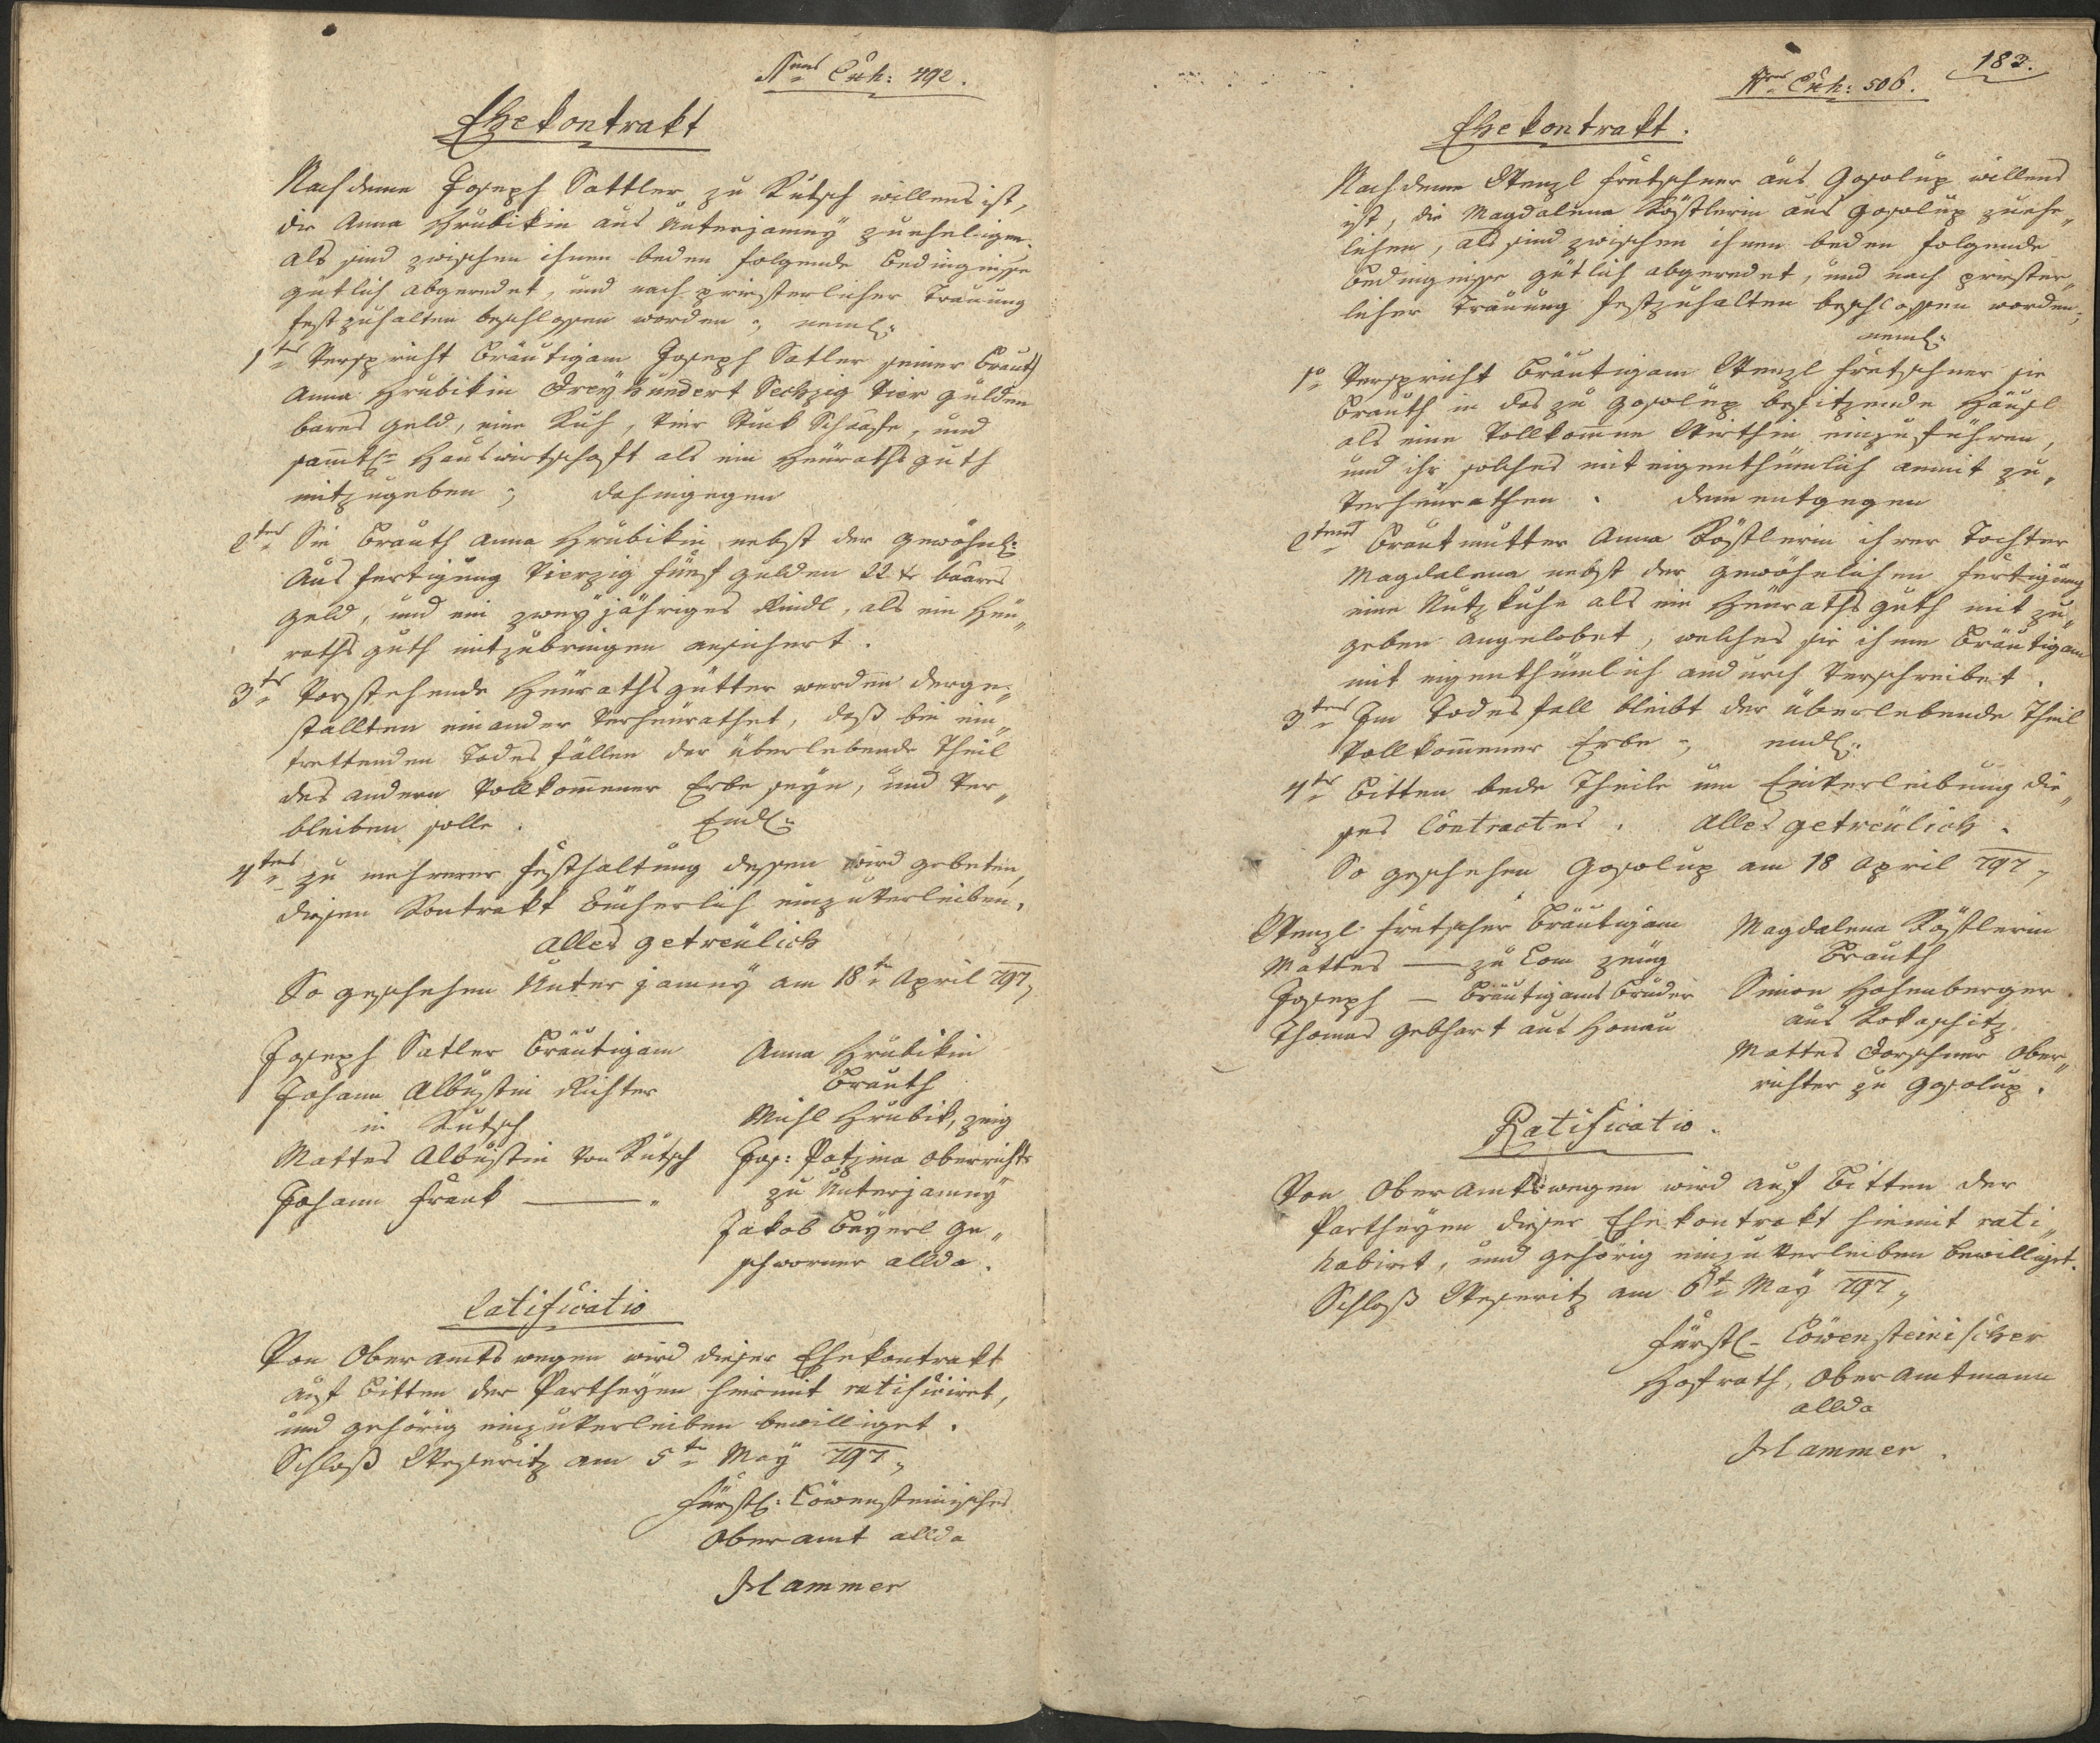 Nrus Exh: 492.
Ehekontrakt
Nachdeme Joseph Sattler zu Kutsch willens ist,
die Anna Hrubikin aus Unterjamnÿ zuehelichen.
Als sind zwischen ihnen beden folgende Bedingniße
gutlich abgeredet, und nach priesterlicher Trauung
festzuhalten beschlossen worden; neml:
1tns Verspricht Bräutigam Joseph Satler seiner Brauth
Anna Hrubikin Dreÿhundert Sechzig Vier gulden
bares geld, eine Kuh, Vier Stuck Schaafe, und
sammtl: Hauswirtschaft als ein Heuraths guth
mitzugeben; dahingegen
2tns Sie Brauth Anna Hrubikin nebst der gewöhnl:
Ausfertigung Vierzig fünf gulden 22 xr baares
geld, und ein zweÿjähriges Rindl, als ein Heu„
rathsguth mitzubringen ansichert.
3tns Vorstehende Heurathsgütter werden derge„
stallten einander Verheurathet, daß bei ein„
trettenden Todesfällen der überlebende Theil
des andern Vollkommener Erbe seÿn, und Ver„
bleiben solle. Endl:
4tens zu mehrerer Festhaltung dessen wird gebeten,
diesen Kontrakt bücherlich einzuverleiben.
Alles getreülich
So geschehen Unterjamnÿ am 18te April 797,
Joseph Satler Bräutigam
Johann Albustin Richter
in Kutsch
Mattes Albustin von Kutsch
Johann Frank ——— „
Anna Hrubikin
Brauth
Michl Hrubik, zeig
Jos: Patzina Oberricht:
zu Unterjamnÿ
Jakob Beÿerl ge„
schworner allda.
Ratificatio
Von Oberamts wegen wird dieser Ehekontrakt
auf Bitten der Partheÿen hiermit ratificiret,
und gehörig einzuverleiben bewilliget.
Schloß Weseritz am 5te Maÿ 797,
Fürstl: Löwensteinisches
Oberamt allda
Hammer
183.
Nrus Exh: 506.
Ehekontrakt.
Nachdeme Wenzl Frutschner aus Gosolup willens
ist, die Magdalena Köstlerin aus Gosolup zuehe„
lichen, als sind zwischen ihnen beden folgende
Bedingniße gütlich abgeredet, und nach priester„
licher Trauung festzuhalten beschlossen worden;
neml:
1o Verspricht Bräutigam Wenzl Frutschner sie
Brauth in das zu Gosolup besitzende Häusl
als eine Vollkomene Wirthin einzuführen,
und ihr solches mit eigenthümlich anmit zu„
verheurathen. dem entgegen
2tens Brautmutter Anna Köstlerin ihrer Tochter
Magdalena nebst der gewöhnlichen Fertigung
eine Nutzkuhe als ein Heurathsguth mitzu„
geben angelobet, welches sie ihm Bräutigam
mit eigenthümlich andurch Verschreibet.
3tens Im Todesfall bleibt der überlebende Theil
Vollkommener Erbe; endl:
4tns Bitten bede Theile um Einverleibung die„
ses Contractes. Alles getreülich.
So geschehen Gosolup am 18 April 797,
Wenzl Frutscher Bräutigam
Mattes — zu Lom zeüg
Joseph — Bräutigams Bruder
Thomas Gebhart aus Honau
Magdalena Köstlerin
Brauth
Simon Hohenberger
aus Kokaschitz
Mattes Dorschner Ober„
richter zu Gosolup.
Ratificatio.
Von Oberamtswegen wird auf Bitten der
Partheÿen dieser Ehekontrakt hiemit rati„
habiret, und gehörig einzuverleiben bewilliget.
Schloß Weseritz am 6te Maÿ 797,
Fürstl- Löwensteinischer
Hofrath, Oberamtmann
allda
Hammer.